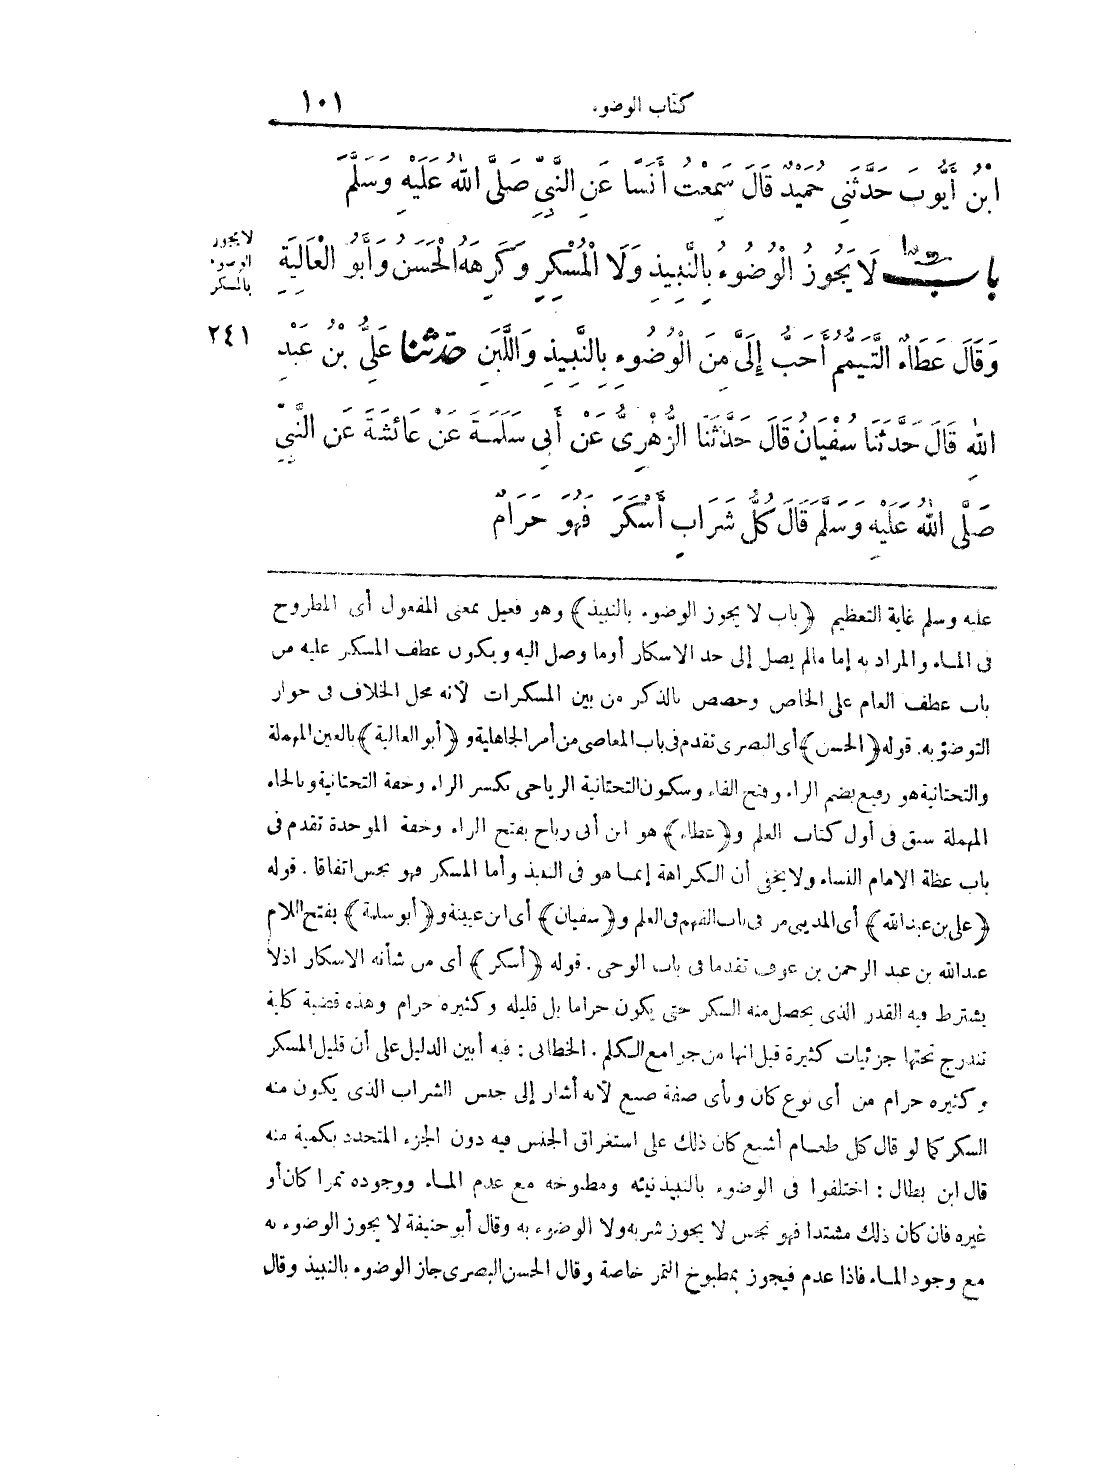 كتاب الوضوء
١٠١
ابْنُ أَيُّوبَ حَدَّثَنِي حُمَيْدٌ قَالَ سَمِعْتُ أَنَسًا عَنِ النَّبِيِّ صَلَّى اللهُ عَلَيْهِ وَسَلَّمَ
بابٌ لَا يَجُوزُ الْوُضُوءُ بِالنَّبِيذِ وَلَا الْمُسْكِرِ وَكَرِهَهُ الْحَسَنُ وَأَبُو الْعَالِيَةِ
لا يجوز
الوضوء
بالمسكر
وَقَالَ عَطَاءٌ التَّيَمُّمُ أَحَبُّ إِلَيَّ مِنَ الْوُضُوءِ بِالنَّبِيذِ وَاللَّبَنِ حَدَّثَنَا عَلِيُّ بْنُ عَبْدِ
٢٤١
اللهِ قَالَ حَدَّثَنَا سُفْيَانُ قَالَ حَدَّثَنَا الزُّهْرِيُّ عَنْ أَبِي سَلَمَةَ عَنْ عَائِشَةَ عَنِ النَّبِيِّ
صَلَّى اللهُ عَلَيْهِ وَسَلَّمَ قَالَ كُلُّ شَرَابٍ أَسْكَرَ فَهُوَ حَرَامٌ
عليه وسلم غاية التعظيم (باب لا يجوز الوضوء بالنبيذ) وهو فعيل بمعنى المفعول أى المطروح
فى الماء والمراد به إما مالم يصل إلى حد الاسكار أوما وصل اليه ويكون عطف المسكر عليه من
باب عطف العام على الخاص وخصص بالذكر من بين المسكرات لأنه محل الخلاف فى جواز
التوضؤ به. قوله (الحسن) أى البصرى تقدم فى باب المعاصى من أمر الجاهلية و (أبو العالية) بالعين المهملة
والتحتانية هو رفيع بضم الراء وفتح الفاء وسكون التحتانية الرياحى بكسر الراء وخفة التحتانية وبالحاء
المهملة سبق فى أول كتاب العلم و (عطاء) هو ابن أبى رباح بفتح الراء وخفة الموحدة تقدم فى
باب عظة الامام النساء ولا يخفى أن الكراهة إنما هو فى النبيذ وأما المسكر فهو نجس اتفاقا. قوله
(على بن عبد الله) أى المدينى مر فى باب الفهم فى العلم و (سفيان) أى ابن عيينة و (أبو سلمة) بفتح اللام
عبدالله بن عبد الرحمن بن عوف تقدما فى باب الوحى. قوله (أسكر) أى من شأنه الاسكار اذ لا
يشترط فيه القدر الذى يحصل منه السكر حتى يكون حراما بل قليله وكثيره حرام وهذه قضية كلية
تندرج تحتها جزئيات كثيرة قيل انها من جوامع الكلم. الخطابى: فيه أبين الدليل على أن قليل المسكر
وكثيره حرام من أى نوع كان وبأى صفة صنع لأنه أشار إلى جنس الشراب الذى يكون منه
السكر كما لو قال كل طعام أشبع كان ذلك على استغراق الجنس فيه دون الجزء المتحدد بكمية منه
قال ابن بطال: اختلفوا فى الوضوء بالنبيذ نيئه ومطبوخه مع عدم الماء ووجوده تمرا كان أو
غيره فان كان ذلك مشتدا فهو نجس لا يجوز شربه ولا الوضوء به وقال أبو حنيفة لا يجوز الوضوء به
مع وجود الماء فاذا عدم فيجوز بمطبوخ التمر خاصة وقال الحسن البصرى جاز الوضوء بالنبيذ وقال